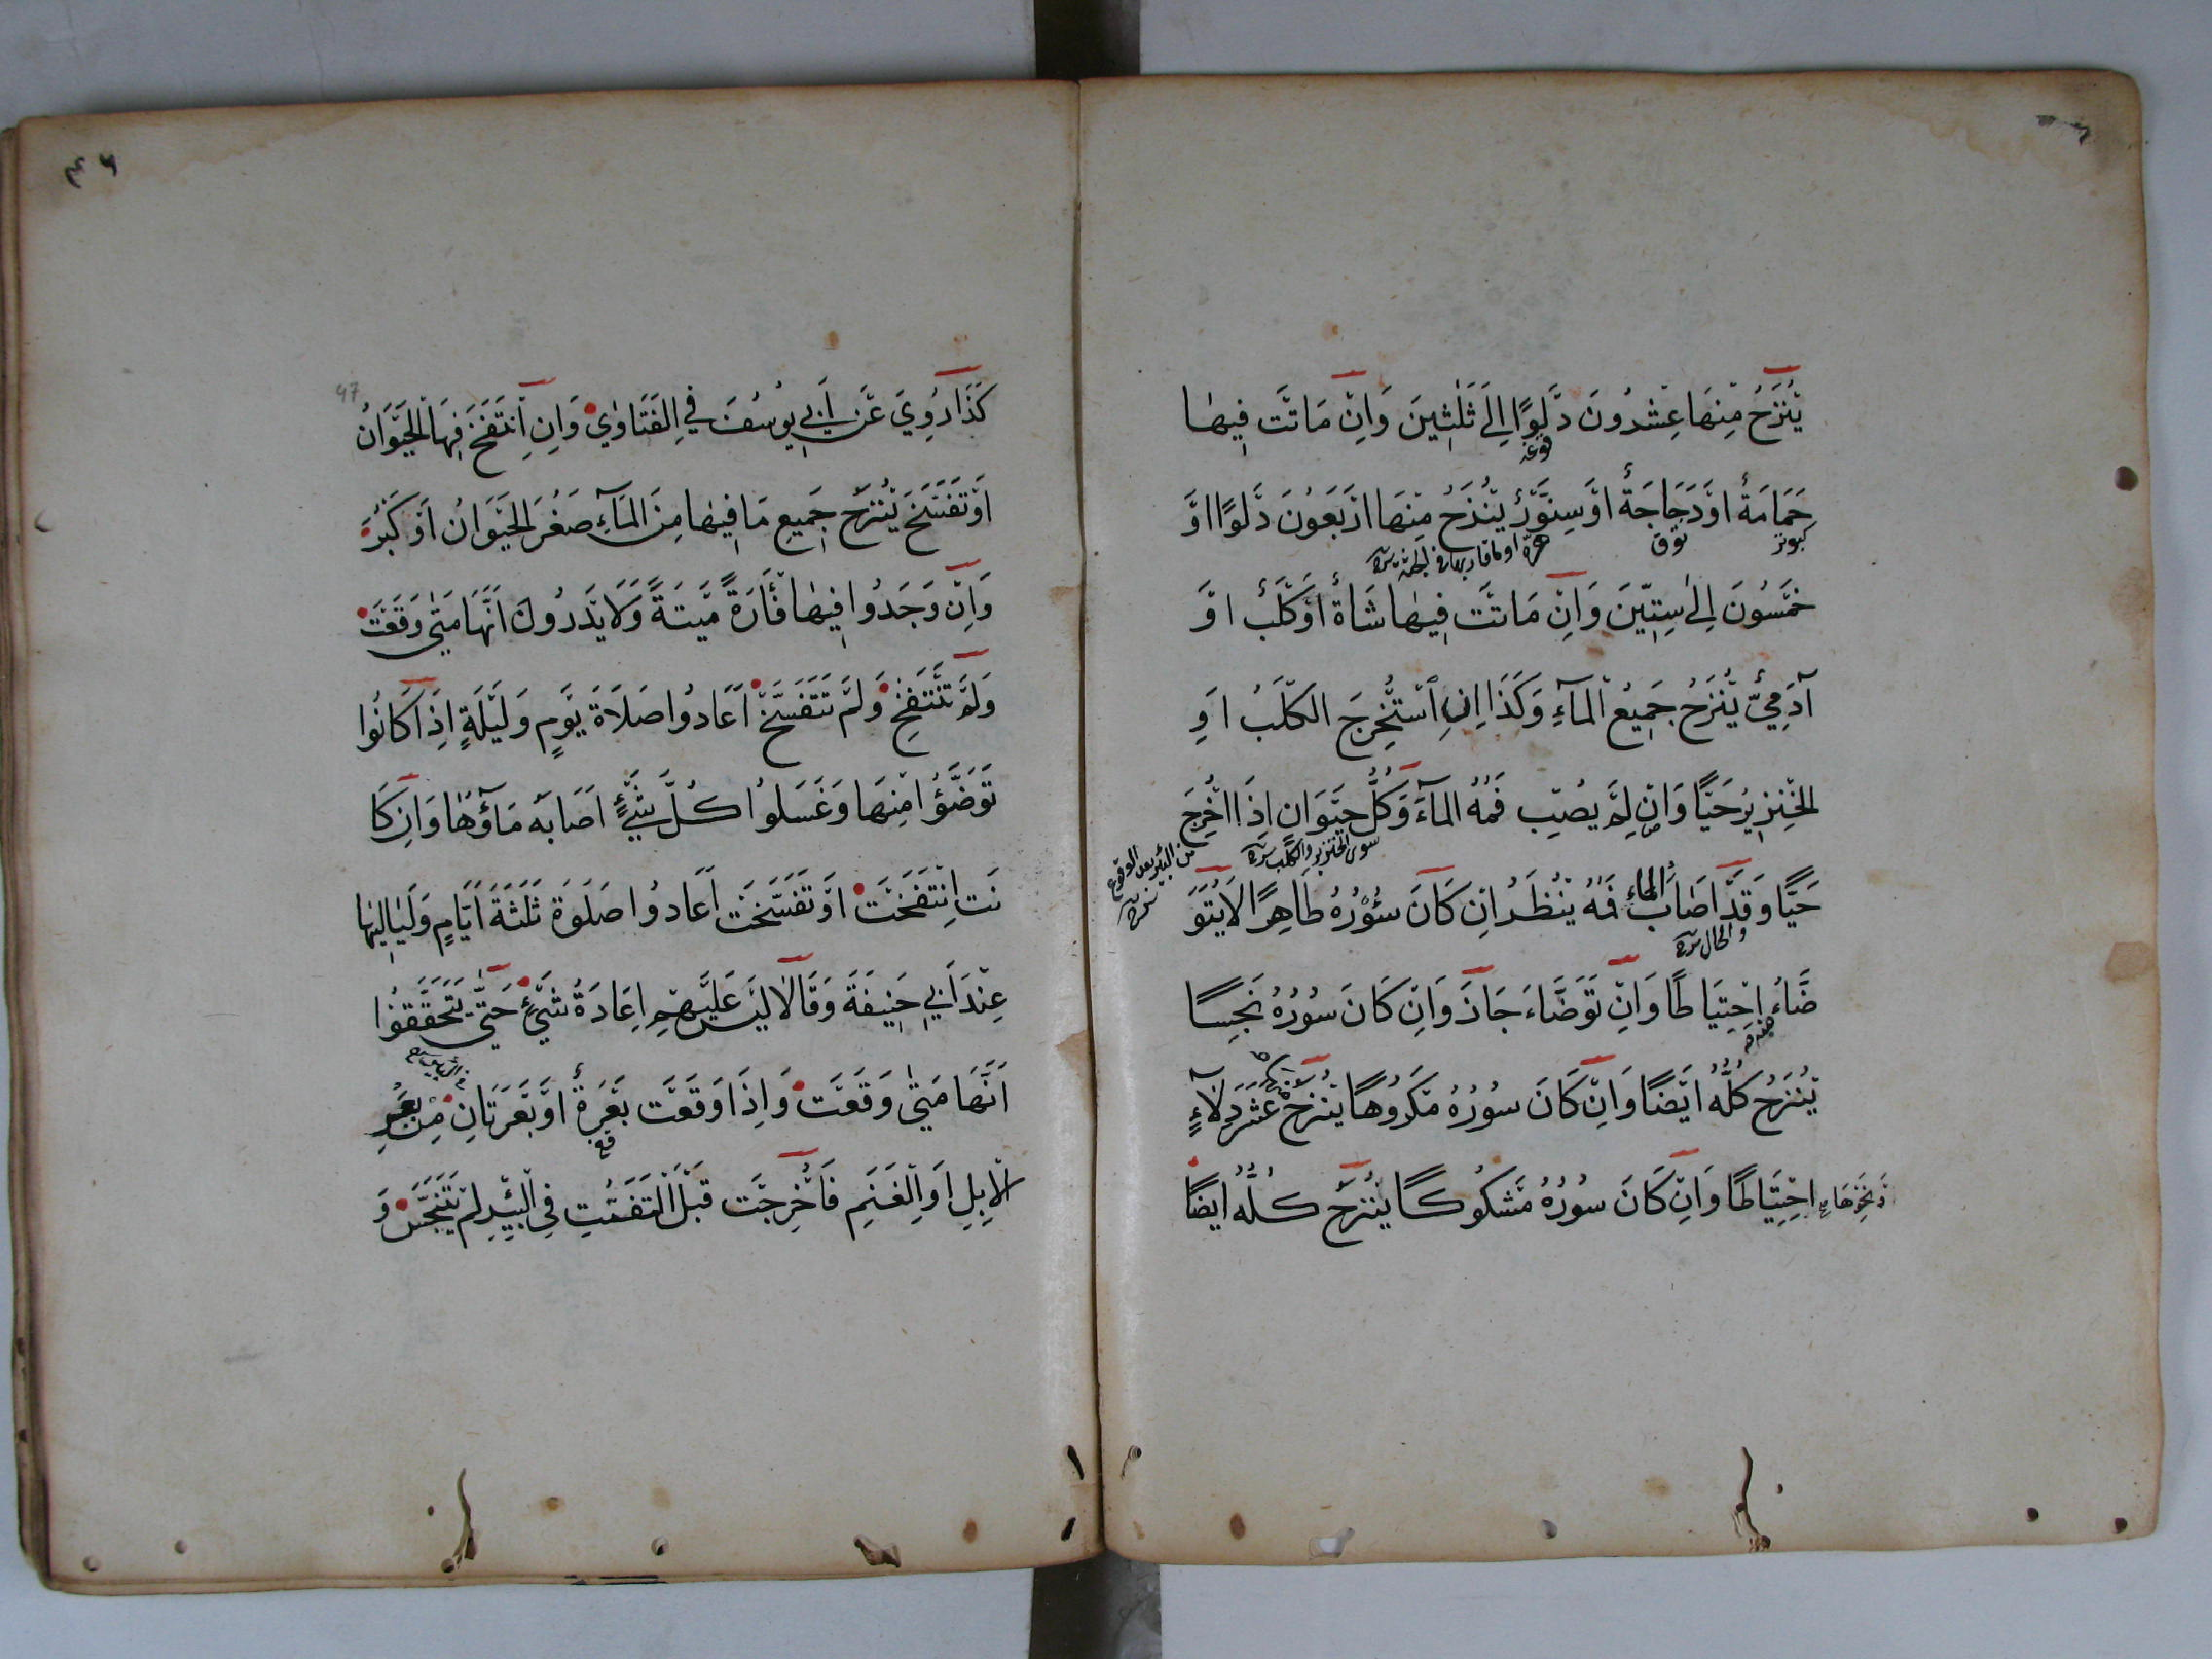 يُنْزَحُ مِنْهَا عِشْرُونَ دَلْوًا اِلَى ثَلٰثِينَ وَاِنْ مَاتَتْ فِيهَا
حَمَامَةٌ اَوْ دَجَاجَةٌ اَوْ سِنَّوْرٌ يُنْزَحُ مِنْهَا اَرْبَعُونَ دَلْوًا اَوْ
خَمْسُونَ اِلٰى سِتِّينَ وَاِنْ مَاتَتْ فِيهَا شَاةٌ اَوْ كَلْبٌ اَوْ
آدَمِيٌّ يُنْزَحُ جَمِيعُ الْمَآءِ وَكَذَا اِنِ اسْتُخْرِجَ الْكَلْبُ اَوِ
الْخِنْزِيرُ حَيًّا وَاِنْ لَمْ يُصِبْ فَمُهُ الْمَآءَ وَكُلُّ حَيَوَانٍ اِذَا اُخْرِجَ
سوى الخنزير والكلب
من البئر بعد الوقوع
حَيًّا وَقَدْ اَصَابَ الْمَاءَ فَمُهُ يُنْظَرُ اِنْ كَانَ سُؤْرُهُ طَاهِرًا لَا يُتَوَ
والحال
ضَّاءُ اِحْتِيَاطًا وَاِنْ تَوَضَّاءَ جَازَ وَاِنْ كَانَ سُورُهُ نَجِسًا
يُنْزَحُ كُلُّهُ اَيْضًا وَاِنْ كَانَ سُورُهُ مَكْرُوهًا يُنْزَحُ عَشْرُ دِلَآءٍ
وَنَحْوُهَا اِحْتِيَاطًا وَاِنْ كَانَ سُورُهُ مَشْكُوكًا يُنْزَحُ كُلُّهُ اَيْضًا
47
كَذَا رُوِيَ عَنْ اَبِي يُوسُفَ فِي الْفَتَاوٰي وَاِنِ انْتَفَخَ فِيهَا الْحَيَوَانُ
اَوْ تَفَسَّخَ يُنْزَحُ جَمِيعِ مَا فِيهَا مِنَ الْمَآءِ صَغُرَ الْحَيَوَانُ اَوْ كَبُرَ
وَاِنْ وَجَدُوا فِيهَا فَأْرَةً مَيْتَةً وَلَا يَدْرُونَ اَنَّهَا مَتٰى وَقَعَتْ
وَلَمْ تَنْتَفِخْ وَلَمْ تَتَفَسَّخْ اَعَادُوا صَلَاةَ يَوْمٍ وَلَيْلَةٍ اِذَا كَانُوا
تَوَضَّؤُا مِنْهَا وَغَسَلُوا كُلَّ شَيْءٍ اَصَابَهُ مَآؤُهَا وَاِنْ كَا
نَتْ اِنْتَفَخَتْ اَوْ تَفَسَّخَتْ اَعَادُوا صَلٰوةَ ثَلٰثَةَ اَيَّامٍ وَلَيَالِيهَا
عِنْدَ اَبِي حَنِيفَةَ وَقَالَا لَيْسَ عَلَيْهِمْ اِعَادَةُ شَيْءٍ حَتّٰى يَتَحَقَّقُوا
اَنَّهَا مَتٰى وَقَعَتْ وَاِذَا وَقَعَتْ بَعْرَةٌ اَوْ بَعْرَتَانِ مِنْ بَعْرِ
الْاِبِلِ اَوِ الْغَنَمِ فَاُخْرِجَتْ قَبْلَ التَّفَتُّتِ فِي الْبِئْرِ لَمْ يَتَنَجَّسْ وَ